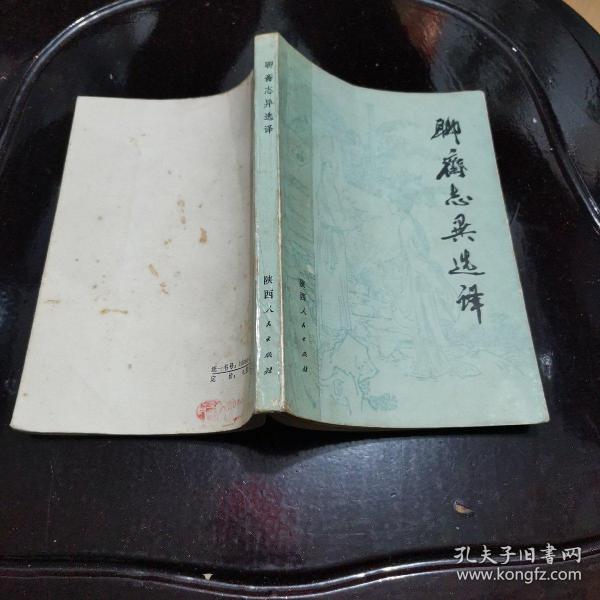 聊斋志异选译
陕西人民出版社
聊齋志異选译
陕西人民出版社
统一书号：
定价：
孔夫子旧書网
www.kongfz.com